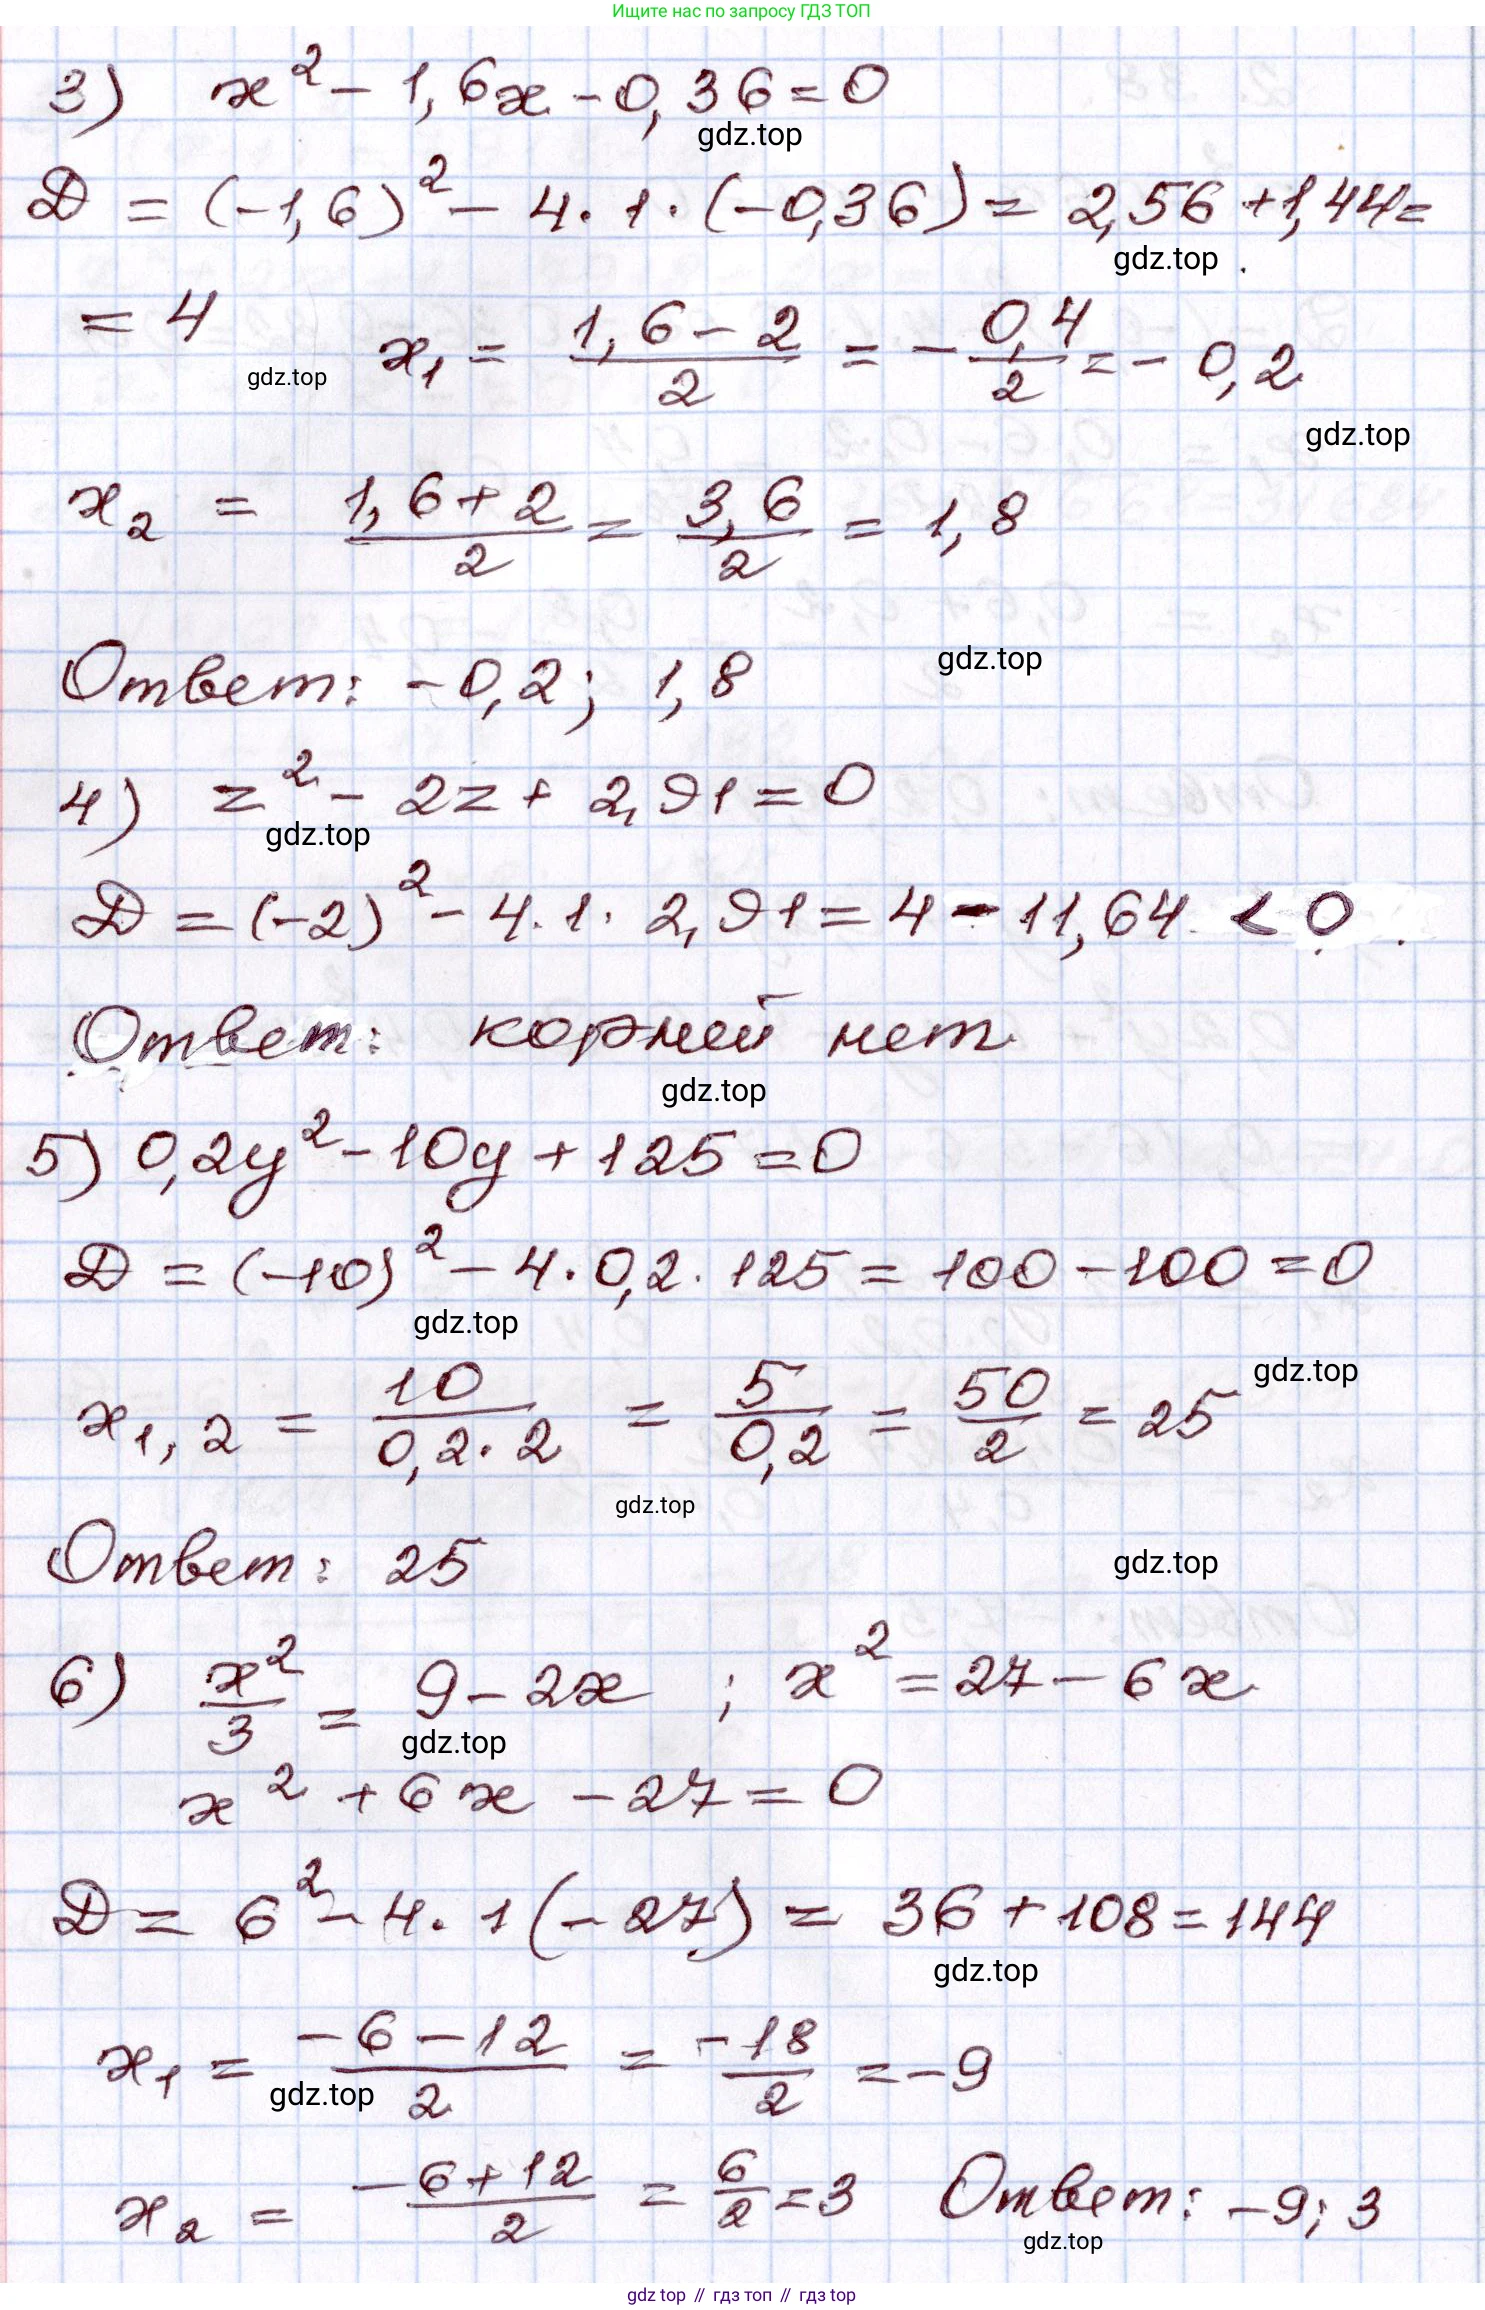 Ищите нас по запросу ГДЗ ТОП
3) x² - 1,6x - 0,36 = 0
gdz.top
D = (-1,6)² - 4 · 1 · (-0,36) = 2,56 + 1,44 =
gdz.top
= 4 x₁ = (1,6 - 2)/2 = - 0,4/2 = - 0,2
gdz.top
gdz.top
x₂ = (1,6 + 2)/2 = 3,6/2 = 1,8
gdz.top
Ответ: -0,2; 1,8
4) z² - 2z + 2,91 = 0
gdz.top
D = (-2)² - 4 · 1 · 2,91 = 4 - 11,64 < 0
Ответ: корней нет
gdz.top
5) 0,2y² - 10y + 125 = 0
D = (-10)² - 4 · 0,2 · 125 = 100 - 100 = 0
gdz.top
gdz.top
x₁,₂ = 10/(0,2 · 2) = 5/0,2 = 50/2 = 25
gdz.top
Ответ: 25
gdz.top
6) x²/3 = 9 - 2x ; x² = 27 - 6x
gdz.top
x² + 6x - 27 = 0
D = 6² - 4 · 1 (-27) = 36 + 108 = 144
gdz.top
x₁ = (-6 - 12)/2 = -18/2 = -9
gdz.top
x₂ = (-6 + 12)/2 = 6/2 = 3 Ответ: -9; 3
gdz.top
gdz top // гдз топ // гдз top